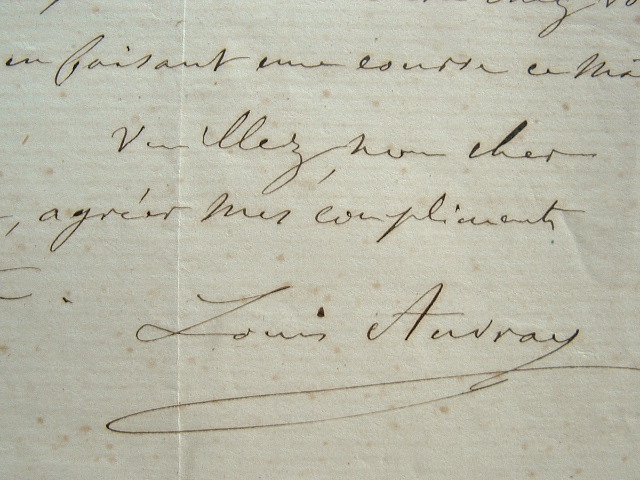 en faisant une course ce ma
Veuillez, mon cher
, agréer mes compliments
Louis Auvray